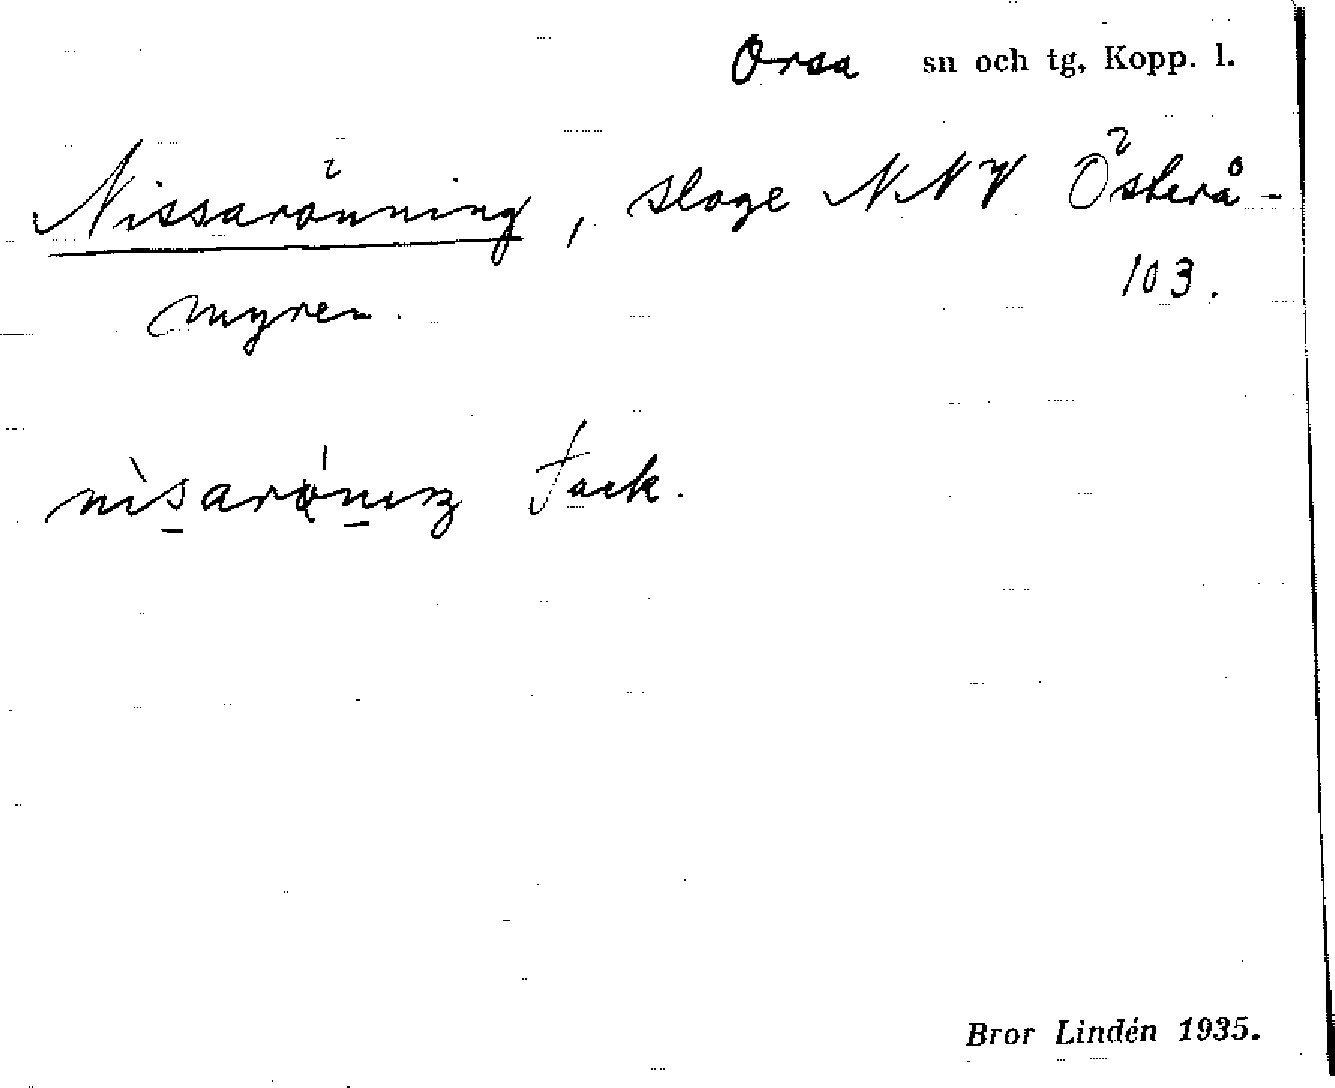 Orsa sn och tg, Kopp. l.
Nissarönning, sloge NNV Österå-
myren. 103.
Jack.
Bror Lindén 1935.